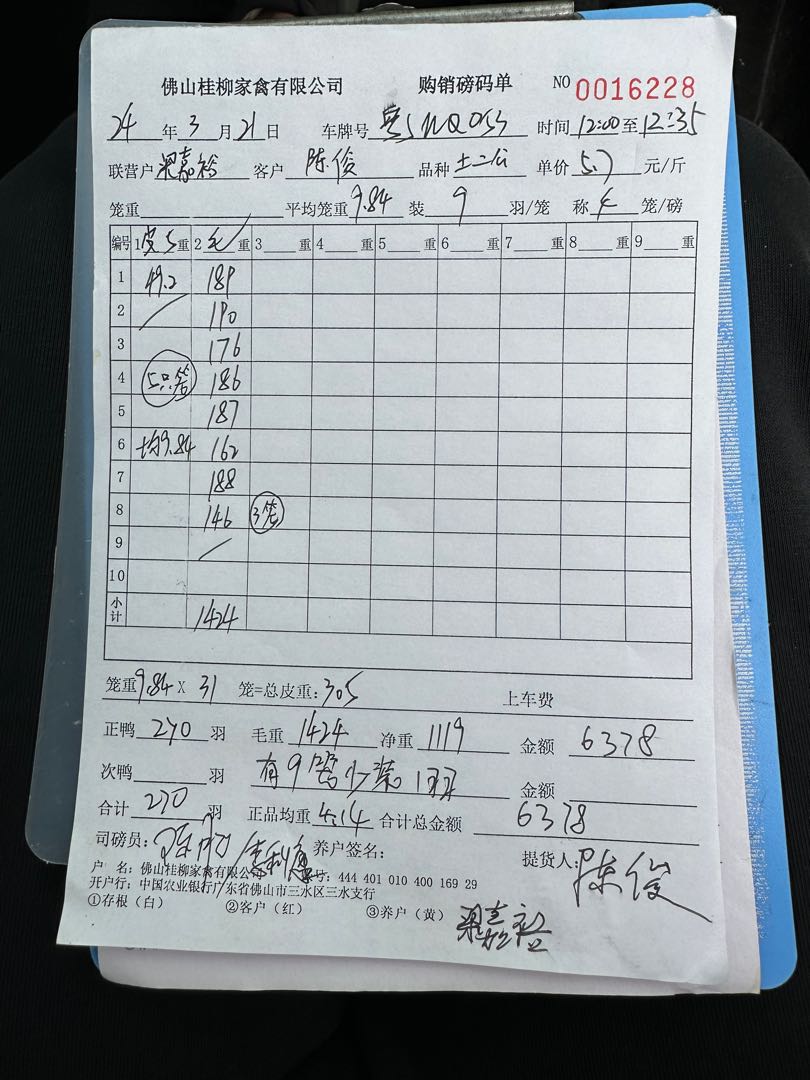 佛山桂柳家禽有限公司 购销磅码单 NO 0016228
24 年 3 月 21 日 车牌号 时间 12:00 至 12:35
联营户 梁嘉裕 客户 陈俊 品种 土二公 单价 5.7 元/斤
笼重 平均笼重 9.84 装 9 羽/笼 称 4 笼/磅
编号 1 皮 重 2 毛 重 3 重 4 重 5 重 6 重 7 重 8 重 9 重
1 49.2 189
2 190
3 176
4 5只笼 186
5 187
6 均9.84 162
7 188
8 146 3笼
9
10
小计 1424
笼重 9.84 X 31 笼=总皮重: 305 上车费
正鸭 270 羽 毛重 1424 净重 1119 金额 6378
次鸭 羽 有9笼少装1羽 金额
合计 270 羽 正品均重 4.14 合计总金额 6378
司磅员: 养户签名: 提货人: 陈俊
户 名: 佛山桂柳家禽有限公 号: 444 401 010 400 169 29
开户行: 中国农业银行广东省佛山市三水区三水支行
①存根（白） ②客户（红） ③养户（黄） 梁嘉裕